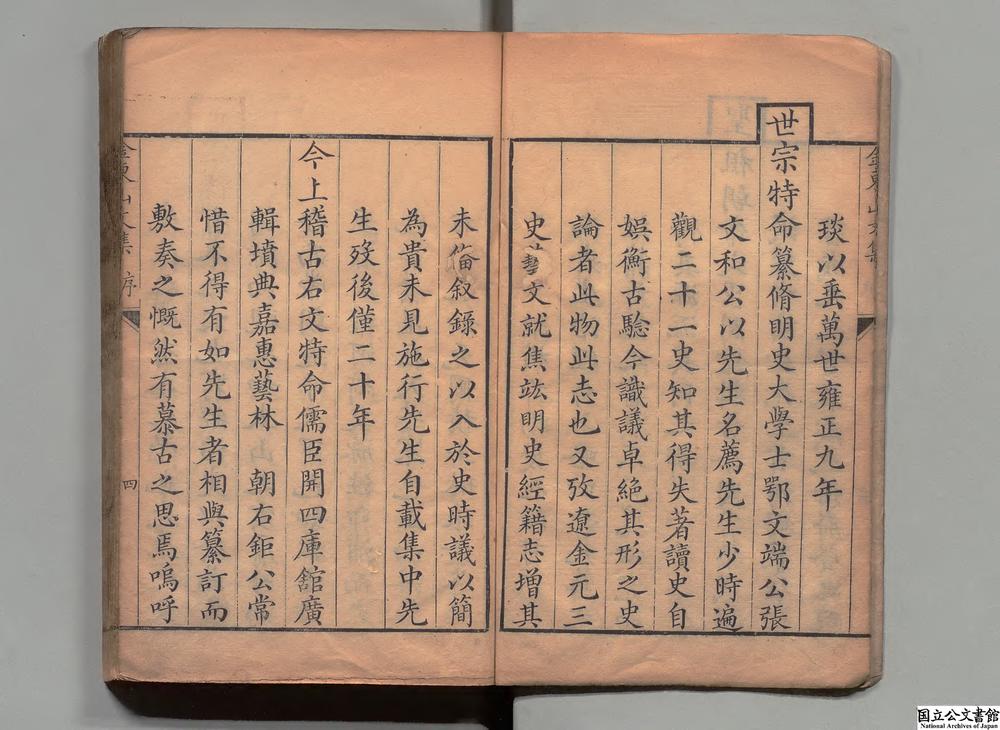 琰以垂萬世雍正九年
世宗特命纂脩明史大學士鄂文端公張
文和公以先生名薦先生少時遍
觀二十一史知其得失著讀史自
娛衡古驗今識議卓絶其形之史
論者此物此志也又攷遼金元三
史藝文就焦竑明史經籍志增其
未備叙錄之以入於史時議以簡
為貴未見施行先生自載集中先
生歿後僅二十年
今上稽古右文特命儒臣開四庫舘廣
輯墳典嘉惠藝林 朝右鉅公常
惜不得有如先生者相與纂訂而
敷奏之慨然有慕古之思焉嗚呼
金東山文集 序
四
国立公文書館
National Archives of Japan